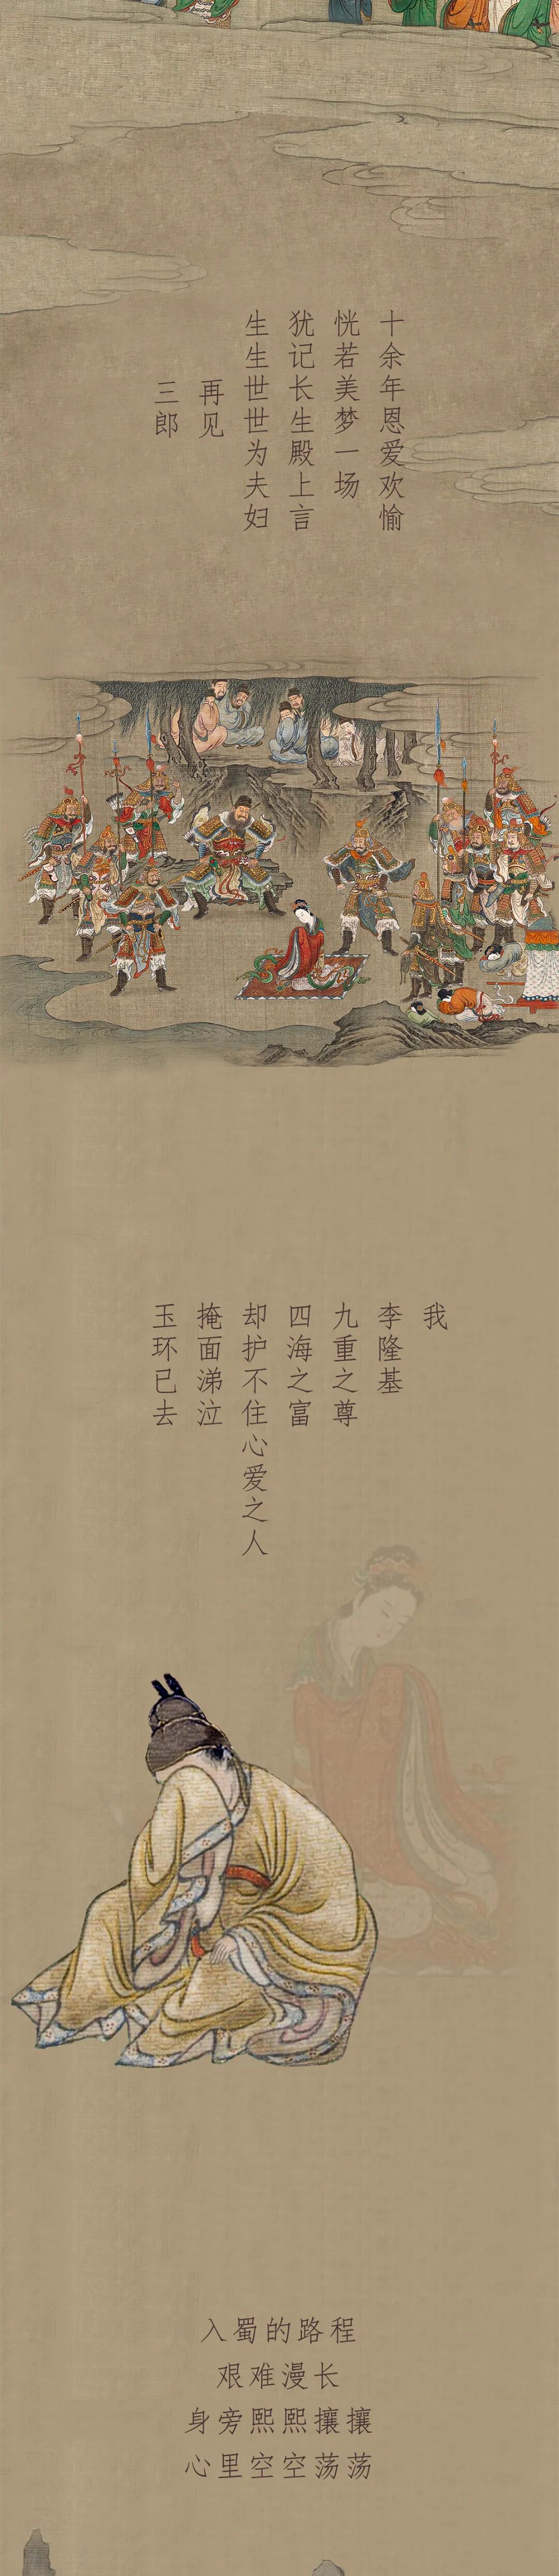 十余年恩爱欢愉
恍若美梦一场
犹记长生殿上言
生生世世为夫妇
再见
三郎
我
李隆基
九重之尊
四海之富
却护不住心爱之人
掩面涕泣
玉环已去
入蜀的路程
艰难漫长
身旁熙熙攘攘
心里空空荡荡